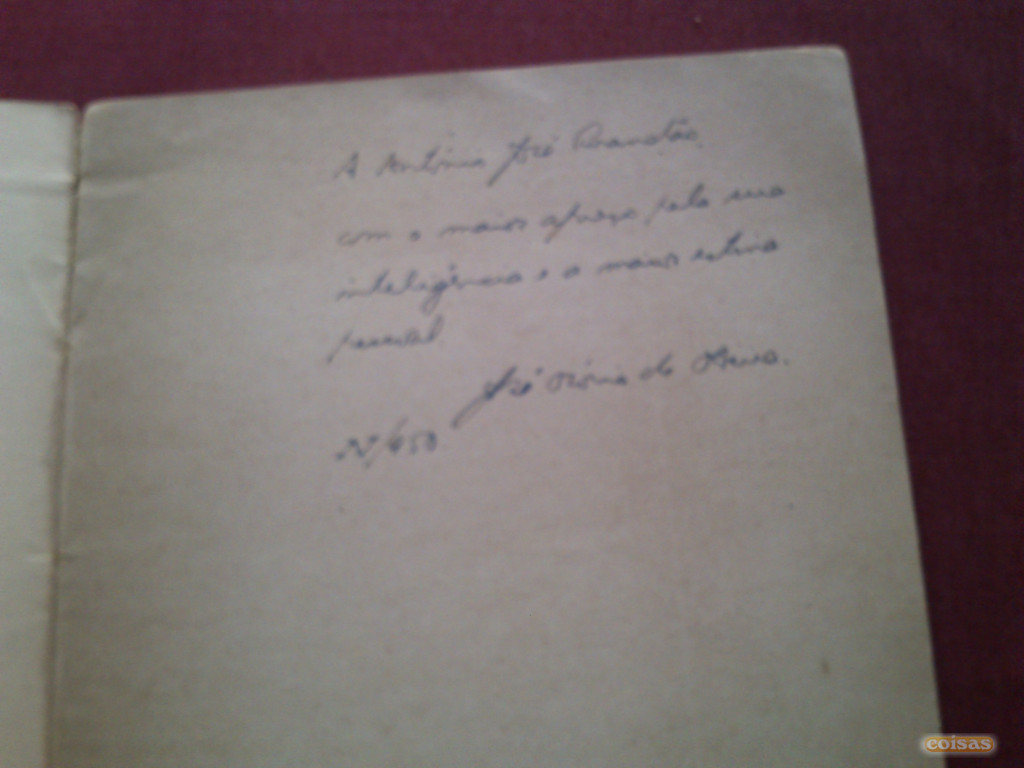 A António José Brandão,
com o maior apreço pela sua
inteligência e a maior estima
pessoal
José
/950.
coisas